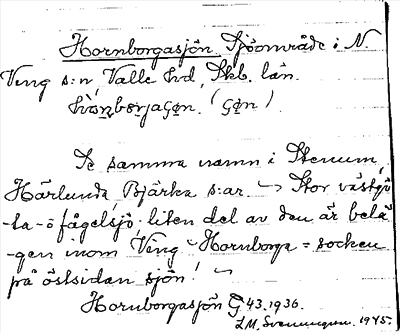 Hornborgasjön Sjöområde i N.
Ving s:n, Valle hd, Skb. län.
(sjön)
Se samma namn i Stenum,
Härlunda, Bjärka s:ar. ~ Stor västgö
-ta-ö fågelsjö; liten del av den är belä
-gen inom Ving - Hornborga = socken
på östsidan sjön! ~
Hornborgasjön G 43. 1936.
L M. Svenungson. 1945.